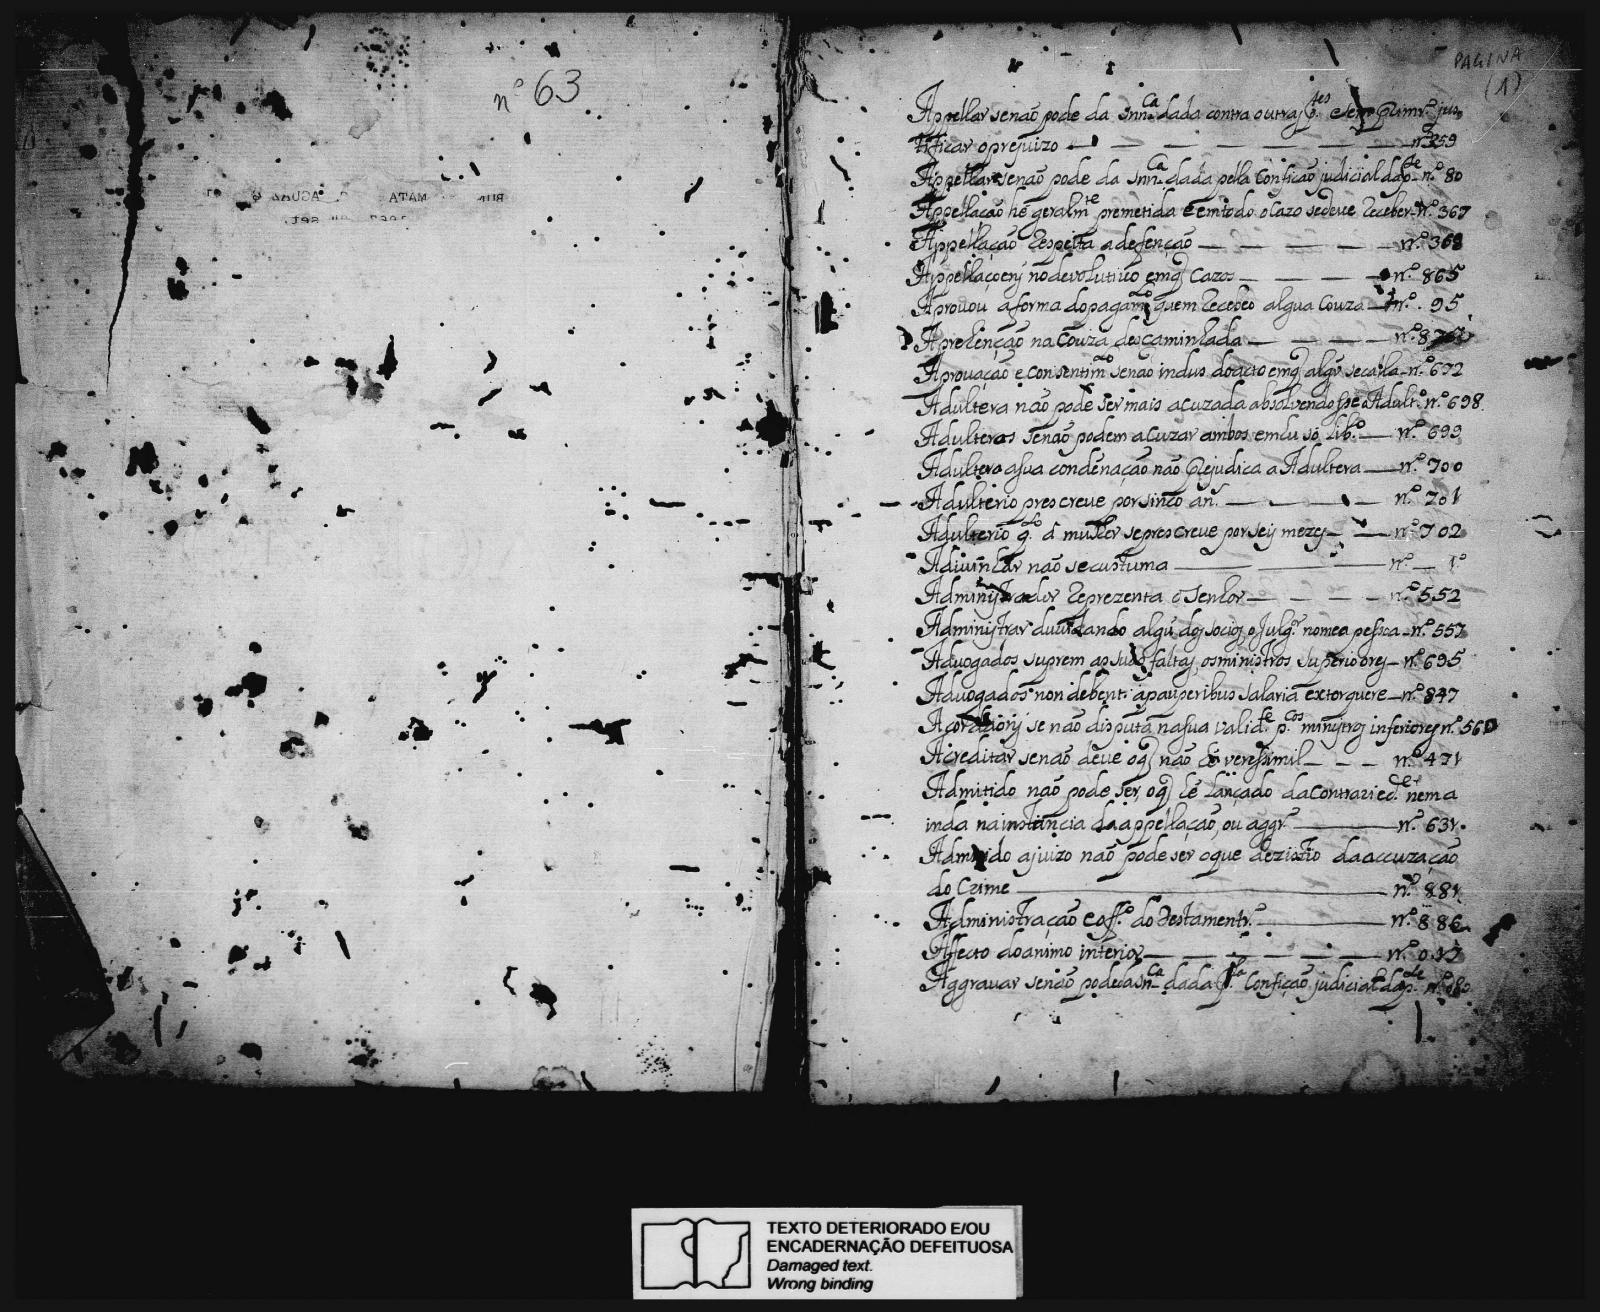 nº 63
PAGINA
(1)
Appellar senão pode da snn.ca dada contra outra p.tes sem primr.o jus
tificar o prejuizo — — — — — nº 359
Appellar senão pode da Snn.ca dada pella Confição judicial da p.te nº 80
Appellação hé geralm.te premetida e em todo o Cazo se deve Receber nº 367
Appellação Respeita a defenção — — — — nº 368
Appellaçoens no devolutivo em q Cazos — — — nº 865
Aprovou a forma do pagam.to quem Recebeo algua Couza — nº 95
Aprehenção na Couza descaminhada — — — nº
Aprovação e Consentim.to senão indus do acto em q algũ se cálla nº 672
Adultera não pode ser mais acuzada absolvendosse o Adult.o nº 698
Adulteros senão podem acuzar ambos em hu só Lib.o — nº 699
Adultero a sua condenação não Prejudica a Adultera — nº 700
Adulterio prescreve por sinco an.s — — — nº 701
Adulterio q.to á mulher se prescreve por seis mezes — — nº 702
Adivinhar não se custuma — — — nº — 1º
Administrador Reprezenta o Senhor — — — — nº 552
Administrar duvidando algũ dos socios o Julg.or nomea pessoa nº 557
Advogados suprem as suas faltas os ministros superiores — nº 695
Advogados non debent á pauperibus salaria extorquere — nº 847
se não disputa na sua valid.e p.los ministros inferiores nº 560
Acreditar senão deve o q não hé verissimil — — — nº 471
Admitido não pode ser, o q hé lançado da Contraried.e nem a
inda na instáncia da appellação, ou aggr.o — nº 631
Admitido a juizo não pode ser o que dezistio da accuzação
do Crime — nº 881
Administração e off.o do Testamentr.o — nº 886
Affecto do animo interior — — — — nº 017
Aggravar senão pode da Sn.ca dada p.la Confição judicial da p.te nº 080
TEXTO DETERIORADO E/OU
ENCADERNAÇÃO DEFEITUOSA
Damaged text.
Wrong binding